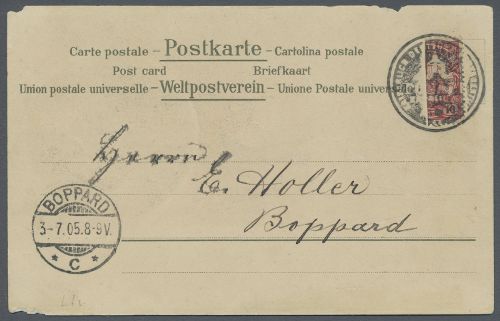 Carte postale – Postkarte – Cartolina postale
Post card Briefkaart
Union postale universelle – Weltpostverein – Unione Postale
Herrn
E. Holler
Boppard
BOPPARD
3-7.05.8-9V.
* C *